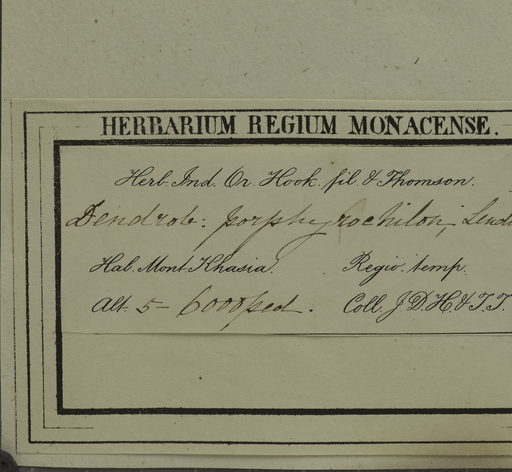 HERBARIUM REGIUM MONACENSE.
Herb. Ind. Or. Hook. fil. & Thomson.
Dendrob: porphyrochilon, Lindl
Hab. Mont. Khasia. Regio. temp.
Alt. 5-6000 ped. Coll. J. D. H. & T. T.